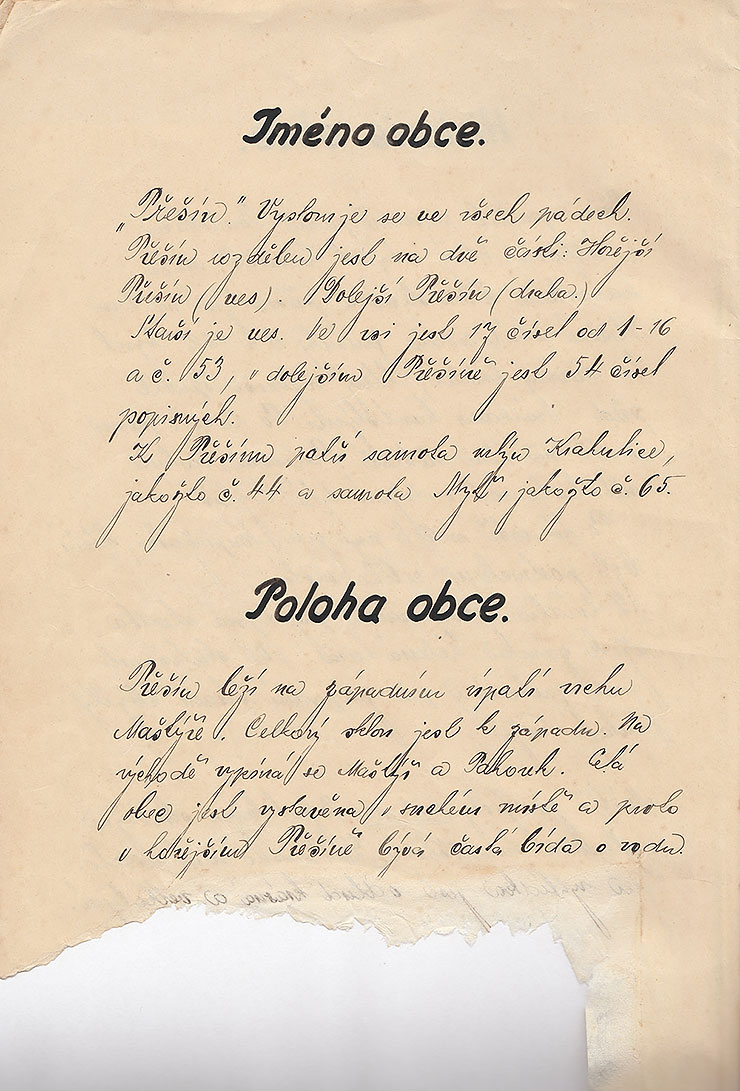 Jméno obce.
„Přešín." Vyslovuje se ve všech pádech.
Přešín rozdělen jest na dvě části: Hořejší
Přešín (ves). Dolejší Přešín (draha.)
Starší je ves. Ve vsi jest 17 čísel od 1-16
a č. 53, v dolejším Přešíně jest 54 čísel
popisných.
K Přešínu patří samota mlýn Krahulice,
jakožto č. 44 a samota jakožto č. 65.
Poloha obce.
Přešín leží na západním úpatí vrchu
Maštýře. Celkový sklon jest k západu. Na
východě vypíná se Maštýř a Pahorek. Celá
obec jest vystavěna v suchém místě a proto
v hořejším Přešíně bývá častá bída o vodu.